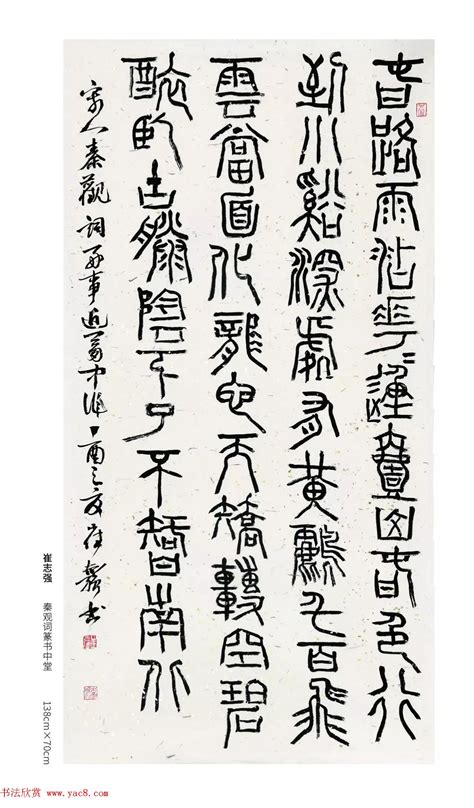 春路雨添花〻動一山春色行
到小溪深處有黃鸝千百飛
雲當面化龍蛇夭矯轉空碧
醉卧古藤陰下了不知南北
宋人秦觀詞好事近夢中作丁酉之夏崔強书
崔志强 秦观词篆书中堂 138cm×70cm
书法欣赏 www.yac8.com